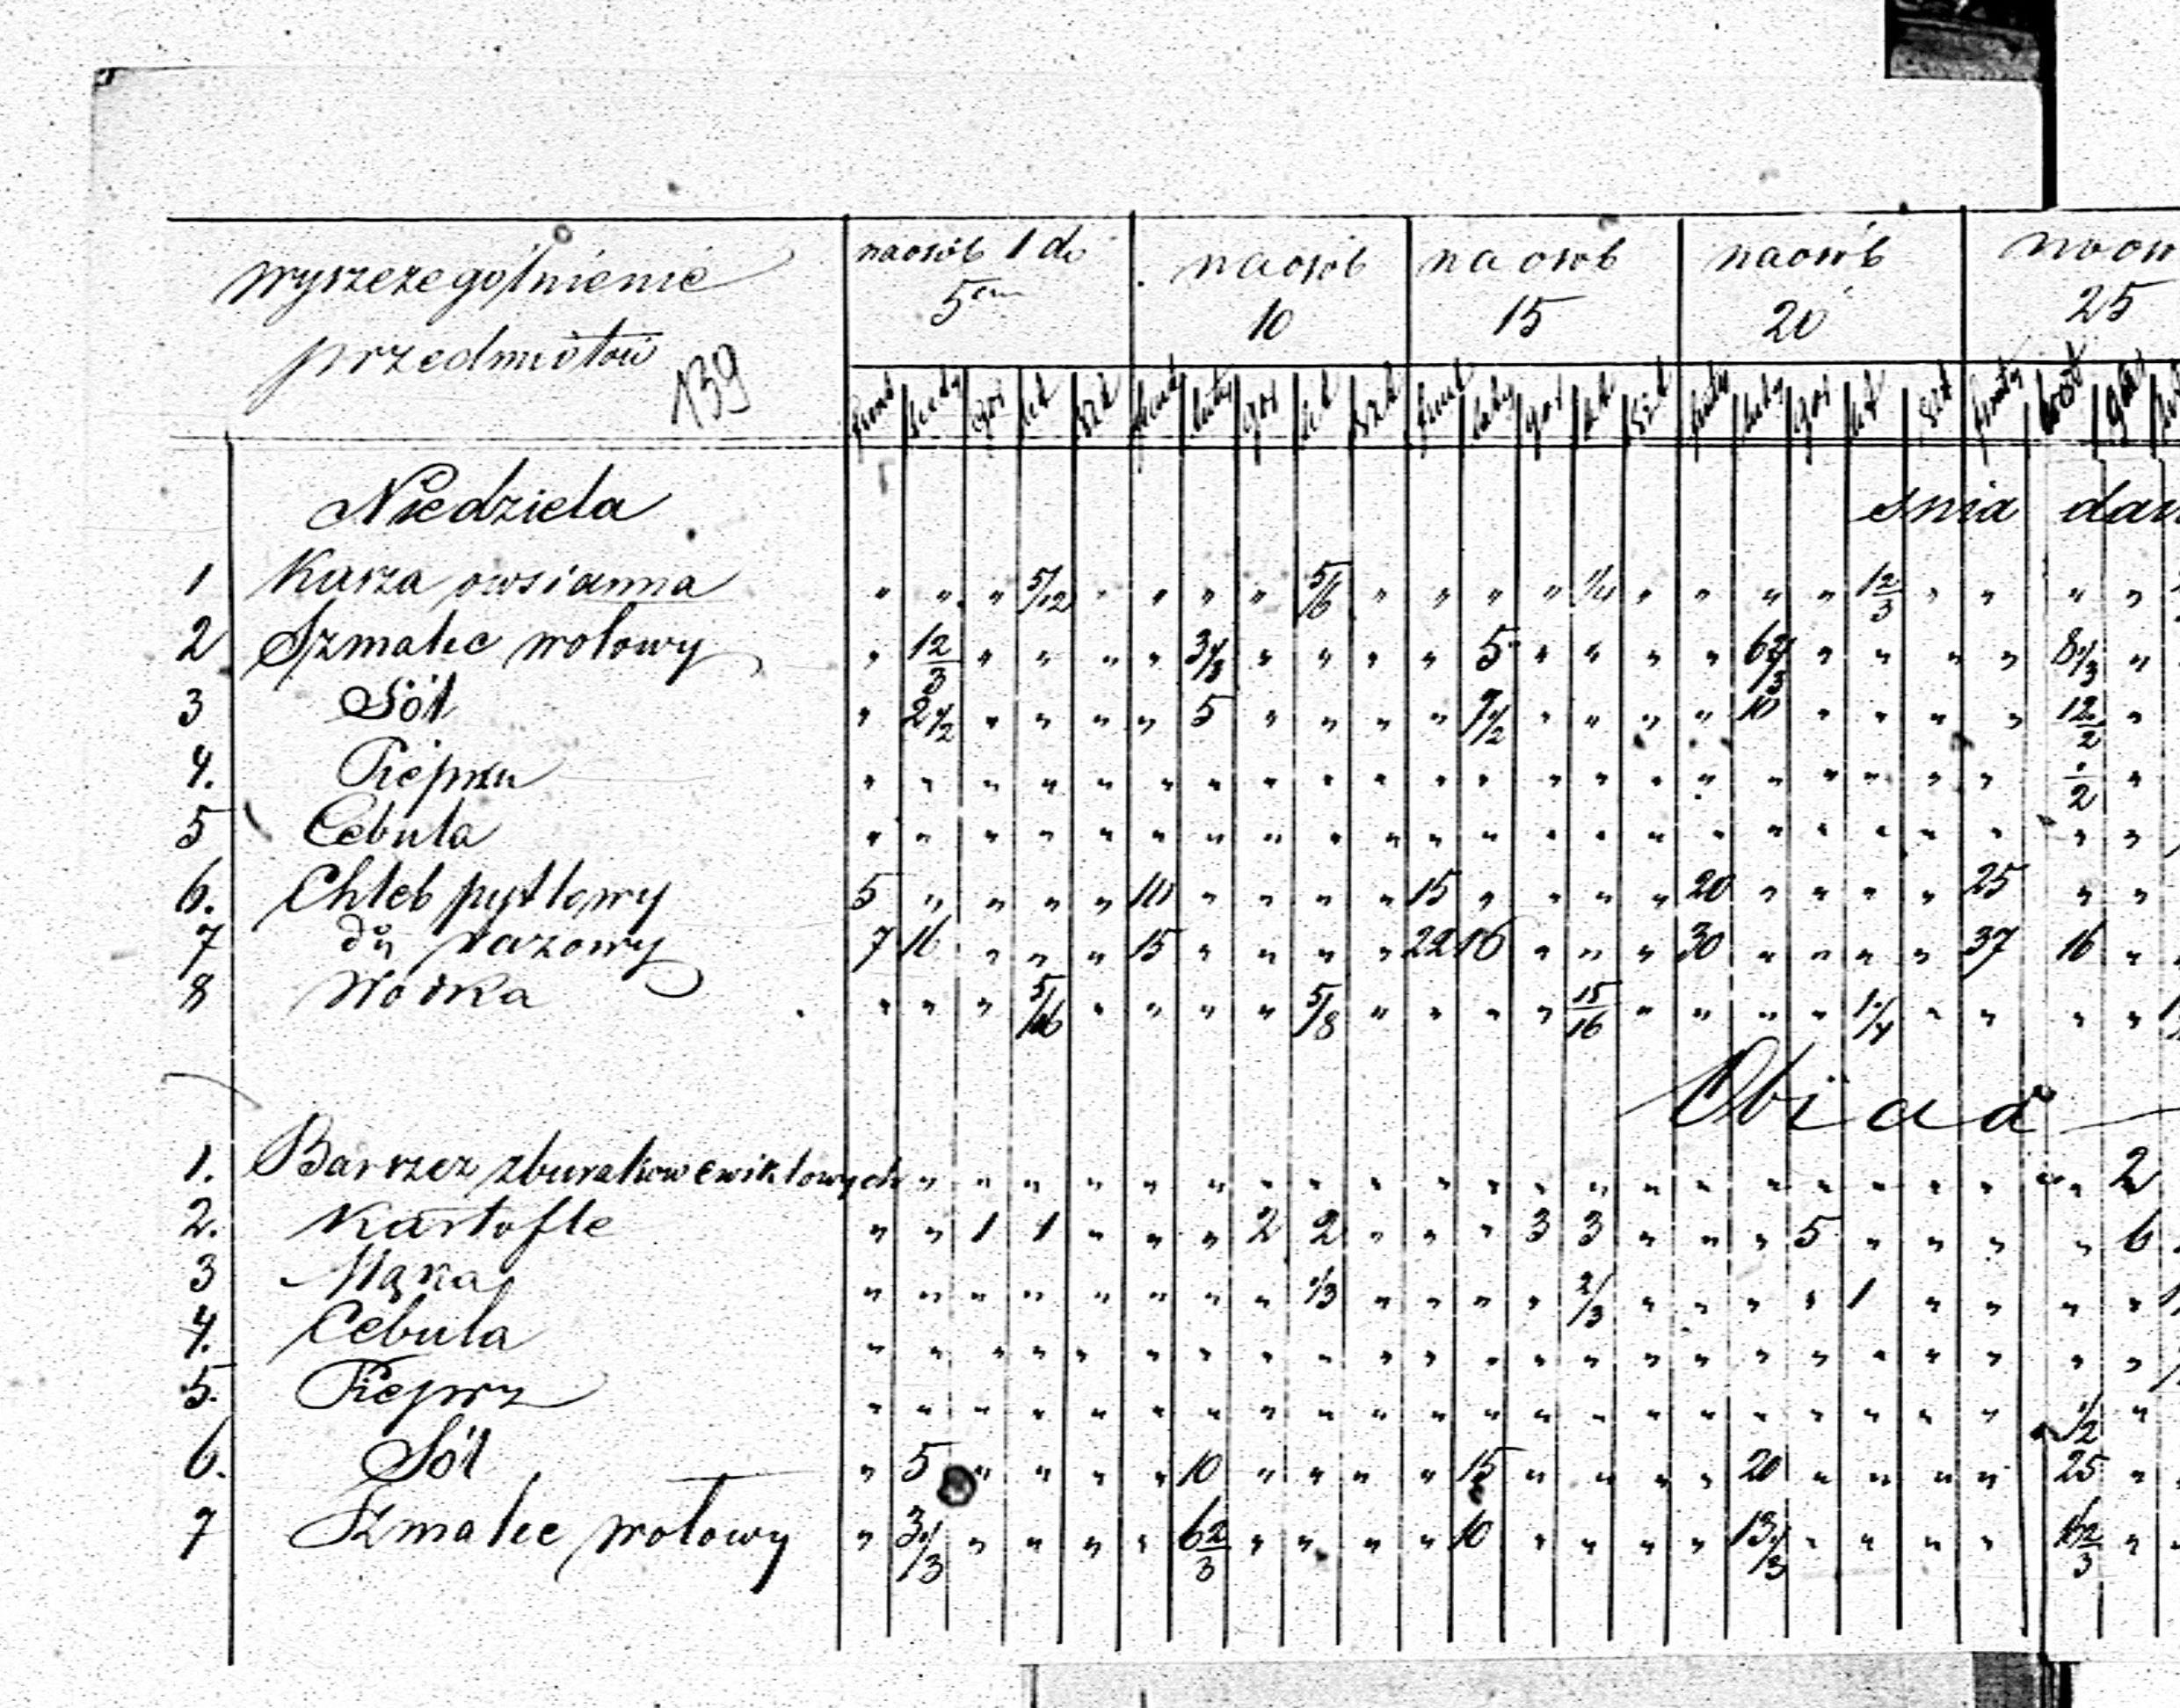 wyszczególnienie przedmiotów 139
na osób 1 do 5ciu | na osób 10 | na osób 15 | na osób 20 | na os 25
funt | łuty | gar | kt | szt | funt | łuty | gar | kt | szt | funt | łuty | gar | kt | szt | funty | łuty | gar | kt | szt | funty | łut | gar
Niedziela snia dan
1 Kasza owsianna " " " 5/12 " " " " 5/6 " " " " 1 1/4 " " " " 1 2/3 " " " "
2 Szmalec wołowy " 1 2/3 " " " " 3 1/3 " " " " 5 " " " " 6 2/3 " " " " 8 1/3 "
3 Sól " 2 1/2 " " " " 5 " " " " 7 1/2 " " " " 10 " " " " 12 1/2 "
4. Pieprzu " " " " " " " " " " " " " " " " " " " " " 1/2 "
5 Cebula " " " " " " " " " " " " " " " " " " " " " " "
6. Chleb pytlowy 5 " " " " 10 " " " " 15 " " " " 20 " " " " 25 " "
7 do razowy 7 16 " " " 15 " " " " 22 16 " " " 30 " " " " 37 16 "
8 Wódka " " " 5/16 " " " " 5/8 " " " " 15/16 " " " " 1 1/4 " " " "
Obiad
1. Barszcz z buraków ćwikłowych " " " " " " " " " " " " " " " " " " " " " 2
2. Kartofle " " 1 1 " " " 2 2 " " " 3 3 " " " 5 " " " " 6
3 Mąka " " " " " " " " 1/3 " " " " 2/3 " " " " 1 " " " "
4. Cebula " " " " " " " " " " " " " " " " " " " " " " "
5. Pieprz " " " " " " " " " " " " " " " " " " " " " 1/2 "
6. Sól " 5 " " " " 10 " " " " 15 " " " " 20 " " " " 25 "
7 Szmalec wołowy " 3 1/3 " " " " 6 2/3 " " " " 10 " " " " 13 1/3 " " " " 16 2/3 "